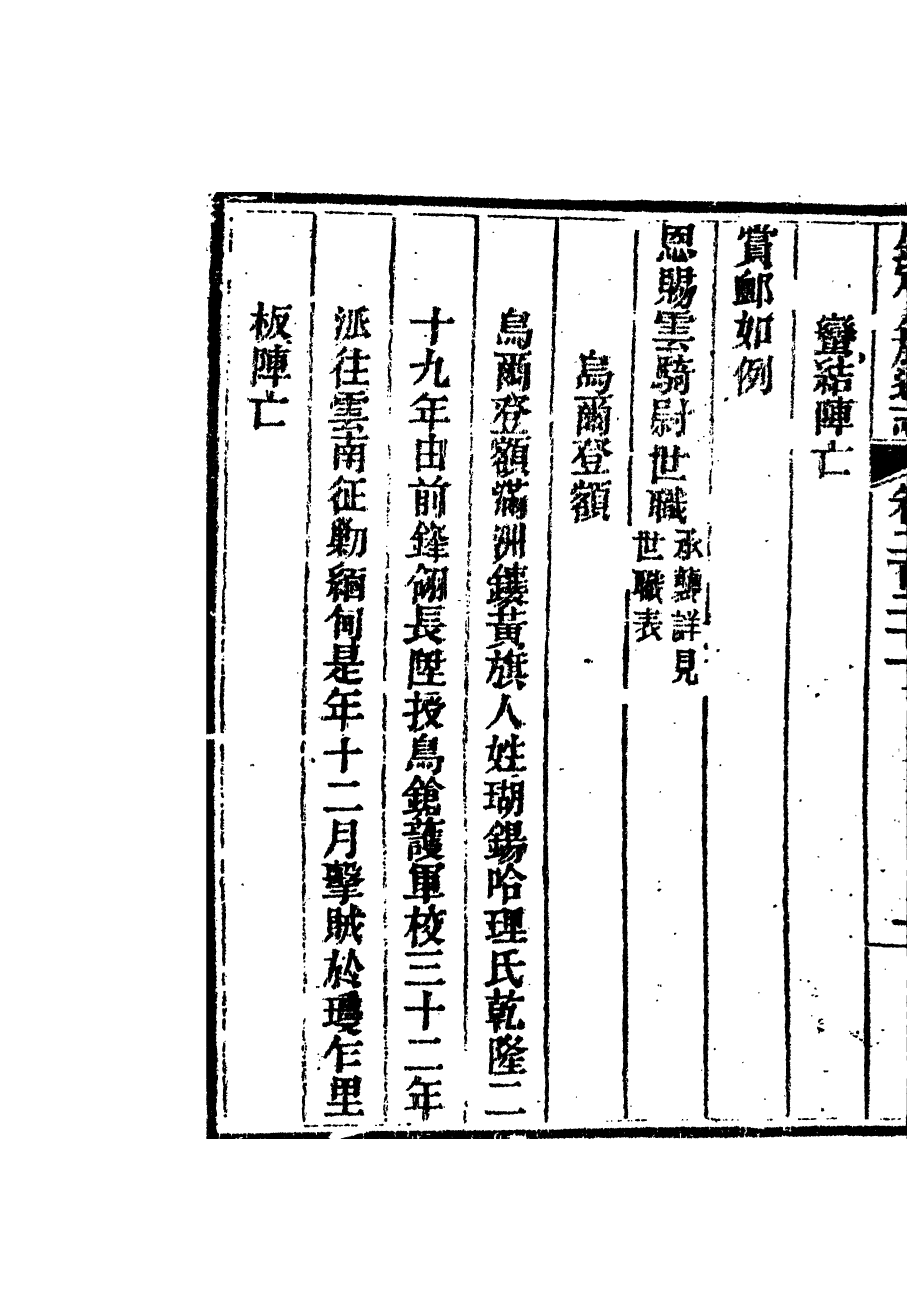 欽定八旗通志 卷二百二十一
蠻結陣亡
賞䘏如例
恩賜雲騎尉世職承襲詳見世職表
烏爾登額
烏爾登額滿洲鑲黃旗人姓瑚錫哈理氏乾隆二
十九年由前鋒領長陞授鳥鎗護軍校三十二年
派往雲南征勦緬甸是年十二月擊賊於瓊乍里
板陣亡